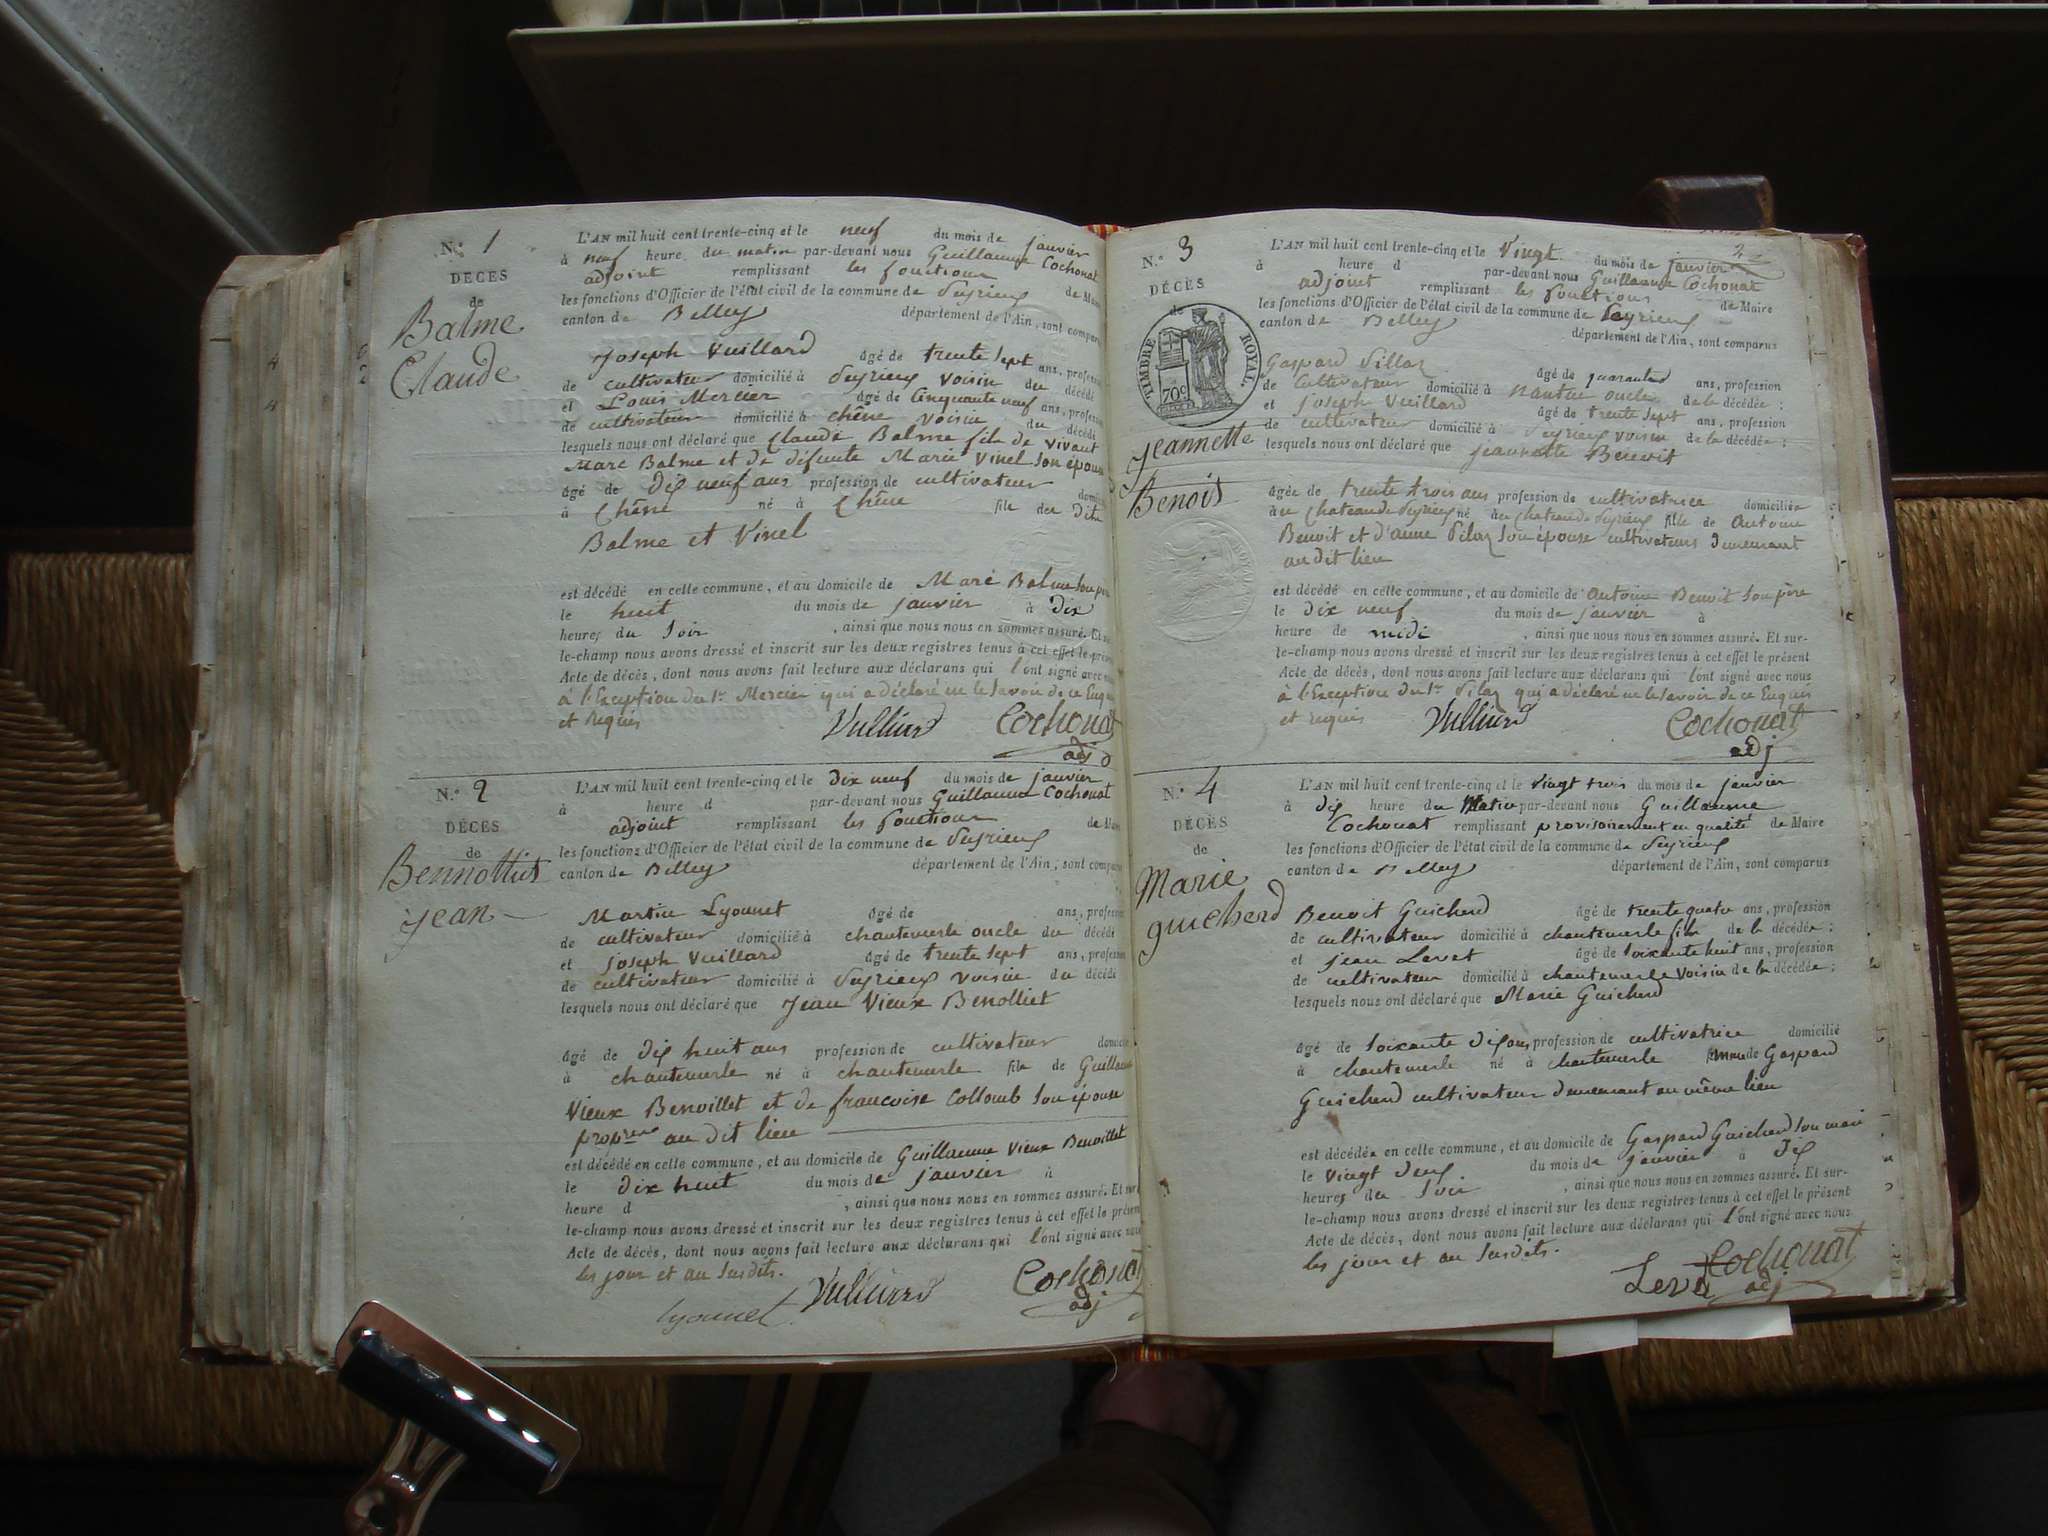 N.° 1
DÉCÈS
de
Balme
Claude
L'AN mil huit cent trente-cinq et le neuf du mois de janvier
à neuf heure du matin par-devant nous Guillaume Cochonat
adjoint remplissant les fonctions de Maire
les fonctions d'Officier de l'état civil de la commune de Peyrieux
canton de Belley département de l'Ain, sont comparus
Joseph Vuillard âgé de trente sept ans, profession
de cultivateur domicilié à Peyrieux voisin du décédé
et Louis Mercier âgé de Cinquante neuf ans, profession
de cultivateur domicilié à Chêne voisin du décédé
lesquels nous ont déclaré que Claude Balme fils de vivant
Marc Balme et de défunte Marie Vinel son épouse
âgé de dix neuf ans profession de cultivateur domicilié
à Chêne né à Chêne fils des dits
Balme et Vinel
est décédé en cette commune, et au domicile de Marc Balme son père
le huit du mois de janvier à dix
heures du soir , ainsi que nous nous en sommes assuré. Et sur-
le-champ nous avons dressé et inscrit sur les deux registres tenus à cet effet le présent
Acte de décès, dont nous avons fait lecture aux déclarans qui l'ont signé avec nous
à l'Exception du Sr. Mercier qui a déclaré ne le savoir de ce Enquis
et requis
Vulliard Cochonat
adj
N.° 2
DÉCÈS
de
Bennolliet
jean
L'AN mil huit cent trente-cinq et le Dix neuf du mois de janvier
à heure d par-devant nous Guillaume Cochonat
adjoint remplissant les fonctions de Maire
les fonctions d'Officier de l'état civil de la commune de Peyrieux
canton de Belley département de l'Ain, sont comparus
Martin Lyonnet âgé de ans, profession
de cultivateur domicilié à chantemerle oncle du décédé
et joseph Vuillard âgé de trente sept ans, profession
de cultivateur domicilié à Peyrieux voisin du décédé
lesquels nous ont déclaré que Jean Vieux Benolliet
âgé de dix huit ans profession de cultivateur domicilié
à chantemerle né à chantemerle fils de Guillaume
Vieux Benoillet et de francoise Collomb son épouse
propres au dit lieu
est décédé en cette commune, et au domicile de Guillaume Vieux Benoillet
le dix huit du mois de janvier à
heure d , ainsi que nous nous en sommes assuré. Et sur-
le-champ nous avons dressé et inscrit sur les deux registres tenus à cet effet le présent
Acte de décès, dont nous avons fait lecture aux déclarans qui l'ont signé avec nous
les jour et an susdits.
lyonnet Vulliard Cochonat
adj
N.° 3
DÉCÈS
de
TIMBRE ROYAL.
70c
jeannette
Benoit
L'AN mil huit cent trente-cinq et le Vingt du mois de janvier
à heure d par-devant nous Guillaume Cochonat
adjoint remplissant les fonctions de Maire
les fonctions d'Officier de l'état civil de la commune de Peyrieux
canton de Belley département de l'Ain, sont comparus
Gaspard Pillaz âgé de quarante ans, profession
de Cultivateur domicilié à Nantue oncle de la décédée ;
et joseph Vuillard âgé de trente sept ans, profession
de cultivateur domicilié à Peyrieux voisin de la décédée ;
lesquels nous ont déclaré que Jeannette Benoit
âgée de trente trois ans profession de cultivatrice domiciliée
au chateau de Peyrieux né au chateau de Peyrieux fille de Antoine
Benoit et d'anne Pilaz son épouse cultivateurs demeurant
au dit lieu
est décédé en cette commune, et au domicile de Antoine Benoit son père
le dix neuf du mois de janvier à
heure de midi , ainsi que nous nous en sommes assuré. Et sur-
le-champ nous avons dressé et inscrit sur les deux registres tenus à cet effet le présent
Acte de décès, dont nous avons fait lecture aux déclarans qui l'ont signé avec nous
à l'Exception du Sr Pilaz qui a déclaré ne le savoir de ce Enquis
et requis Vulliard Cochonat
adj
N.° 4
DÉCÈS
de
Marie
guicherd
L'AN mil huit cent trente-cinq et le Vingt trois du mois de janvier
à dix heure du Matin par-devant nous Guillaume
Cochonat remplissant provisoirement en qualité de Maire
les fonctions d'Officier de l'état civil de la commune de Peyrieux
canton de Belley département de l'Ain, sont comparus
Benoit Guicherd âgé de trente quatre ans, profession
de cultivateur domicilié à chantemerle fils de la décédée ;
et jean Levet âgé de soixante huit ans, profession
de cultivateur domicilié à chantemerle voisin de la décédée ;
lesquels nous ont déclaré que Marie Guicherd
âgé de soixante dix ans profession de cultivatrice domicilié
à chantemerle né à chantemerle femme de Gaspard
Guicherd cultivateur demeurant au même lieu
est décédée en cette commune, et au domicile de Gaspard Guicherd son mari
le vingt deux du mois de janvier à dix
heures du soir , ainsi que nous nous en sommes assuré. Et sur-
le-champ nous avons dressé et inscrit sur les deux registres tenus à cet effet le présent
Acte de décès, dont nous avons fait lecture aux déclarans qui l'ont signé avec nous
les jour et an susdits.
Levet Cochonat
adj